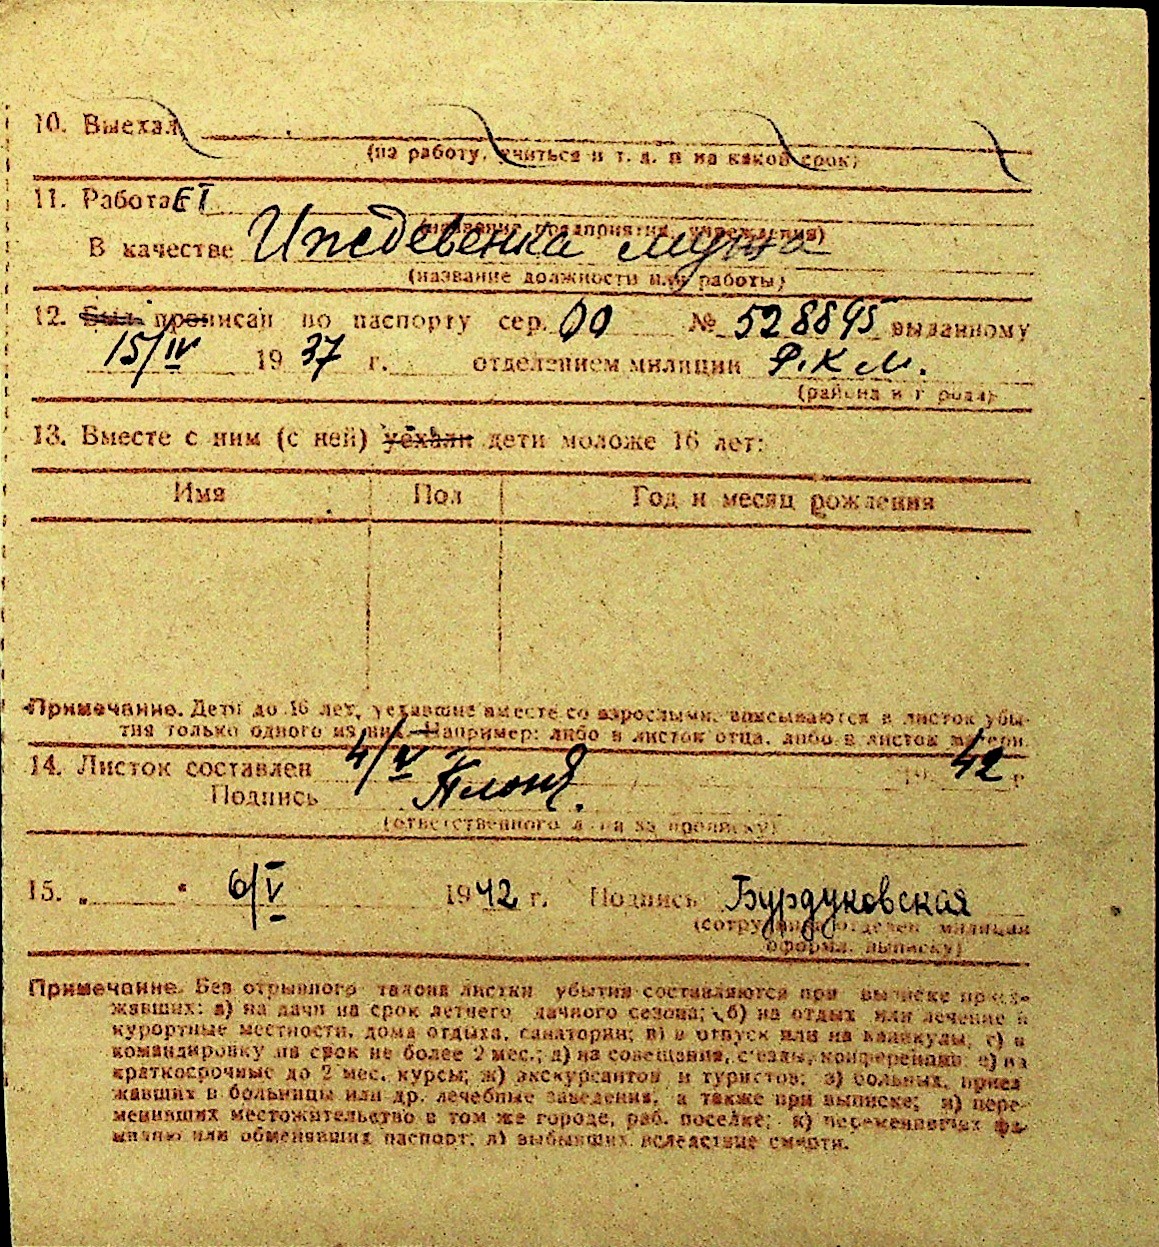 10. Выехал
(на работу, учиться и т. д. и на какой срок)
11. РаботаЕТ
(название предприятия, учреждения)
В качестве Иждевенка мужа
(название должности или работы)
12. Был прописан по паспорту сер. 00 № 528895 выданному
15/IV 1937 г. отделением милиции Р.К.М.
(района и города)
13. Вместе с ним (с ней) уехали дети моложе 16 лет:
Имя Пол Год и месяц рождения
Примечание. Дети до 16 лет, уехавшие вместе со взрослыми, вписываются в листок убы-
тия только одного из них. Например: либо в листок отца, либо в листок матери.
14. Листок составлен 4/V 1942 г
Подпись
(ответственного лица за прописку)
15. „ " 6/V 1942 г. Подпись Бурдуковская
(сотрудника отделен. милиции
оформл. выписку)
Примечание. Без отрывного талона листки убытия составляются при выписке приез-
жавших: а) на дачи на срок летнего дачного сезона; б) на отдых или лечение в
курортные местности, дома отдыха, санатории; в) в отпуск или на каникулы; г) в
командировку на срок не более 2 мес.; д) на совещания, съезды, конференции е) на
краткосрочные до 2 мес. курсы; ж) экскурсантов и туристов; з) больных, приез
жавших в больницы или др. лечебные заведения, а также при выписке; и) пере-
менивших местожительство в том же городе, раб. поселке; к) переменивших фа-
милию или обменявших паспорт; л) выбывших вследствие смерти.